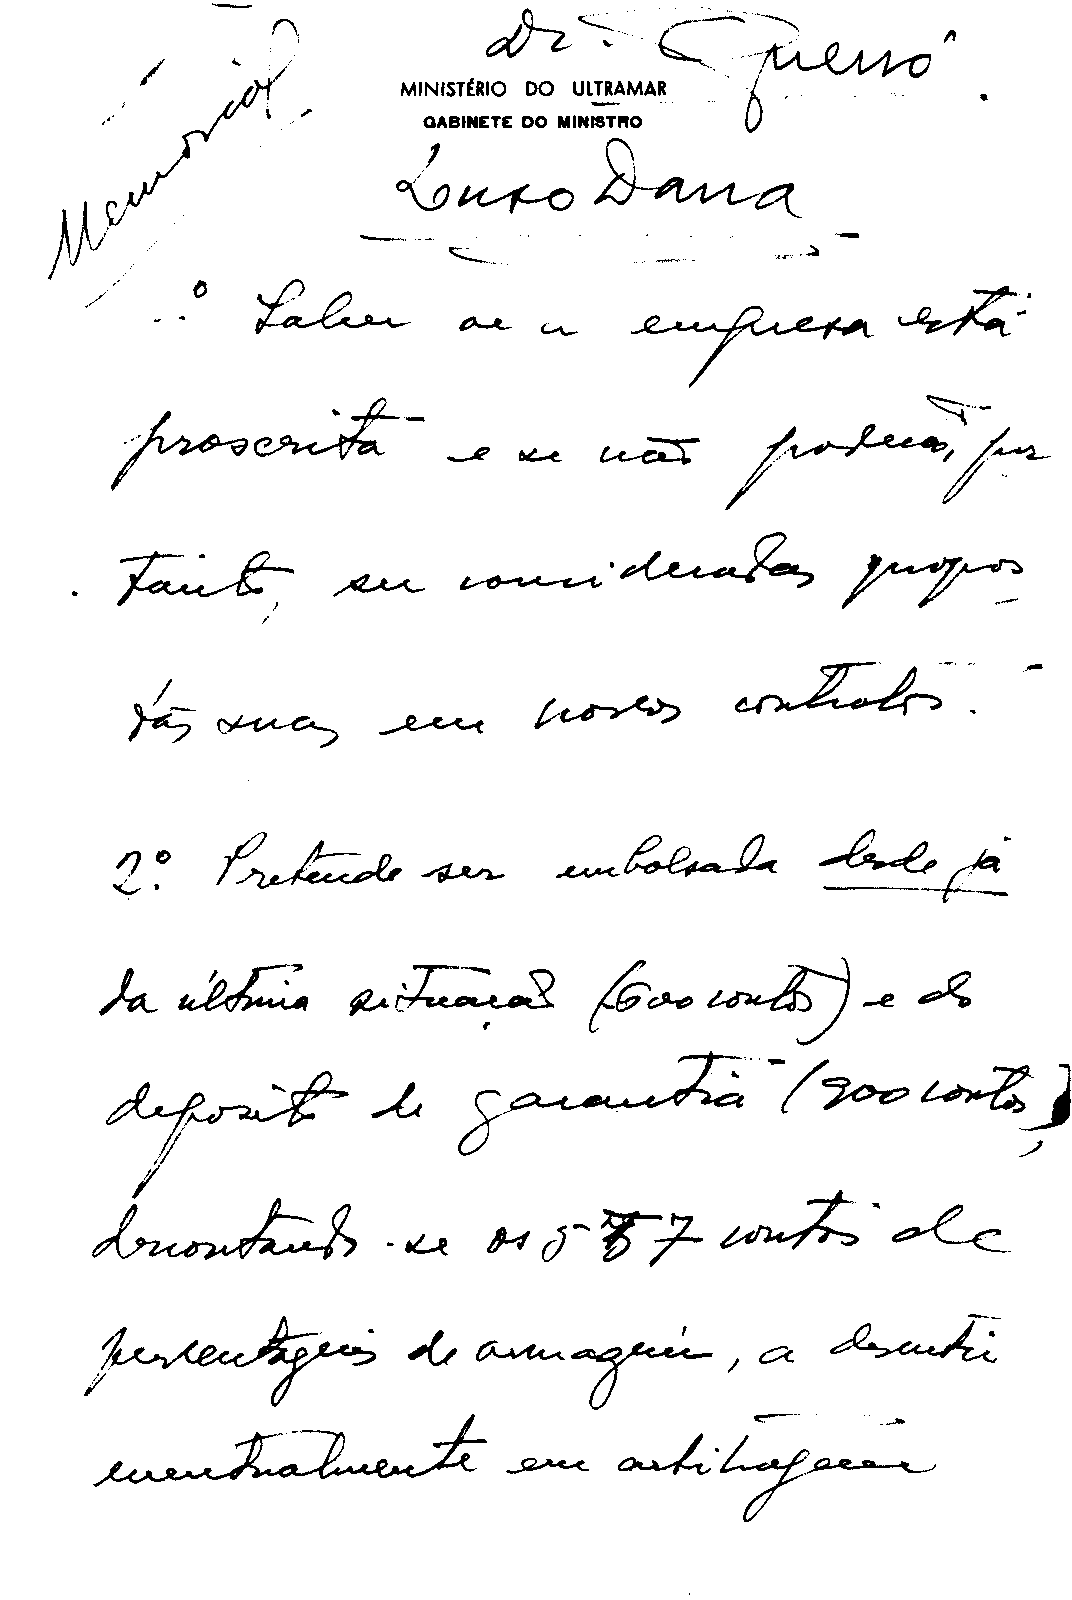 Memorial
Dr. Queiró.
MINISTÉRIO DO ULTRAMAR
GABINETE DO MINISTRO
Luso Dana
1.º Saber se a empresa está
proscrita e se não poderão, por
tanto, ser consideradas propos
tas suas em novos contratos.
2.º Pretende ser embolsada desde já
da última situação (600 contos) e do
deposito de garantia (900 contos),
descontando-se os 5 7 contos de
percentagens de armagem, a discutir
eventualmente em arbitragem